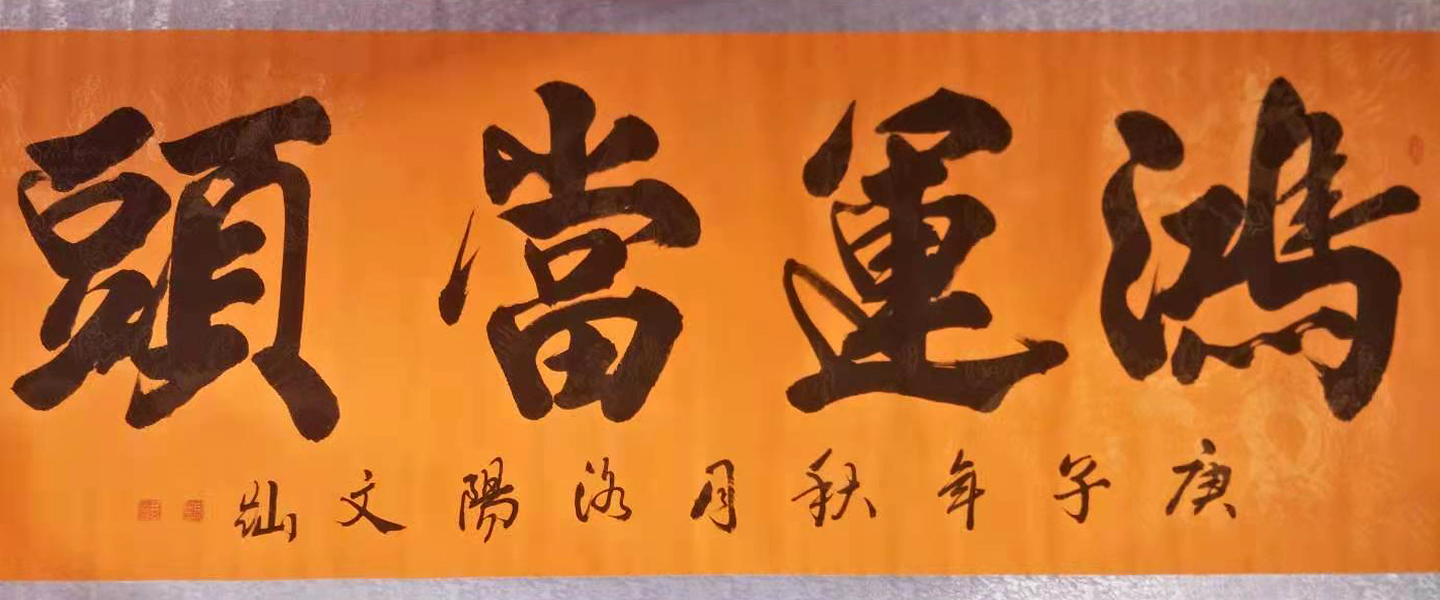 鴻運當頭
庚子年秋月洛陽文灿